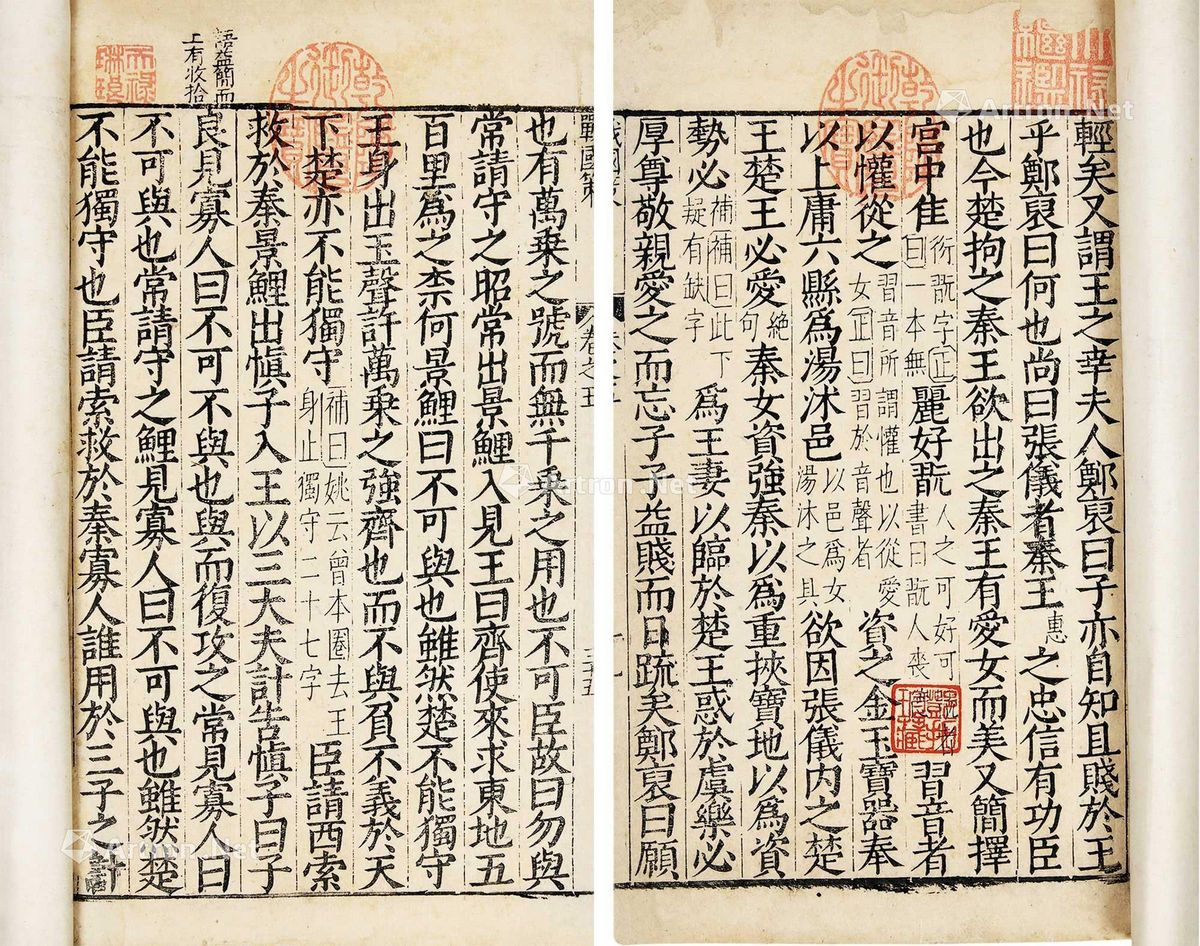 輕矣又謂王之幸夫人鄭褏曰子亦自知且賤於王
乎鄭褏曰何也尚曰張儀者秦王惠之忠信有功臣
也今楚拘之秦王欲出之秦王有愛女而美又簡擇
宮中佳衍翫字正曰一本無麗好翫人之可好可翫者書曰翫人喪習音者
以懽從之習音所謂懽也以從愛女正曰習於音聲者資之金玉寶器奉
以上庸六縣為湯沐邑以邑為女湯沐之具欲因張儀內之楚
王楚王必愛絕句秦女資強秦以為重挾寶地以為資
勢必補補曰此下疑有缺字為王妻以臨於楚王惑於虞樂必
厚尊敬親愛之而忘子子益賤而日疏矣鄭褏曰願
戰國策 卷之五 三十五
也有萬乘之號而無千乘之用也不可臣故曰勿與
常請守之昭常出景鯉入見王曰齊使來求東地五
百里為之柰何景鯉曰不可與也雖然楚不能獨守
王身出玉聲許萬乘之強齊也而不與負不義於天
下楚亦不能獨守補曰姚云曾本圈去王身止獨守二十七字臣請西索
救於秦景鯉出慎子入王以三大夫計告慎子曰子
良見寡人曰不可不與也與而復攻之常見寡人曰
不可與也常請守之鯉見寡人曰不可與也雖然楚
不能獨守也臣請索救於秦寡人誰用於三子之計
語益簡而
上有收拾
Artron.Net
Artron.Net
Artron.Net
Artron.Net